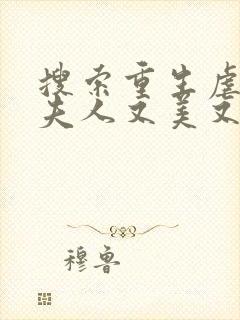 搜索重生虐
夫人又美又
穆鲁